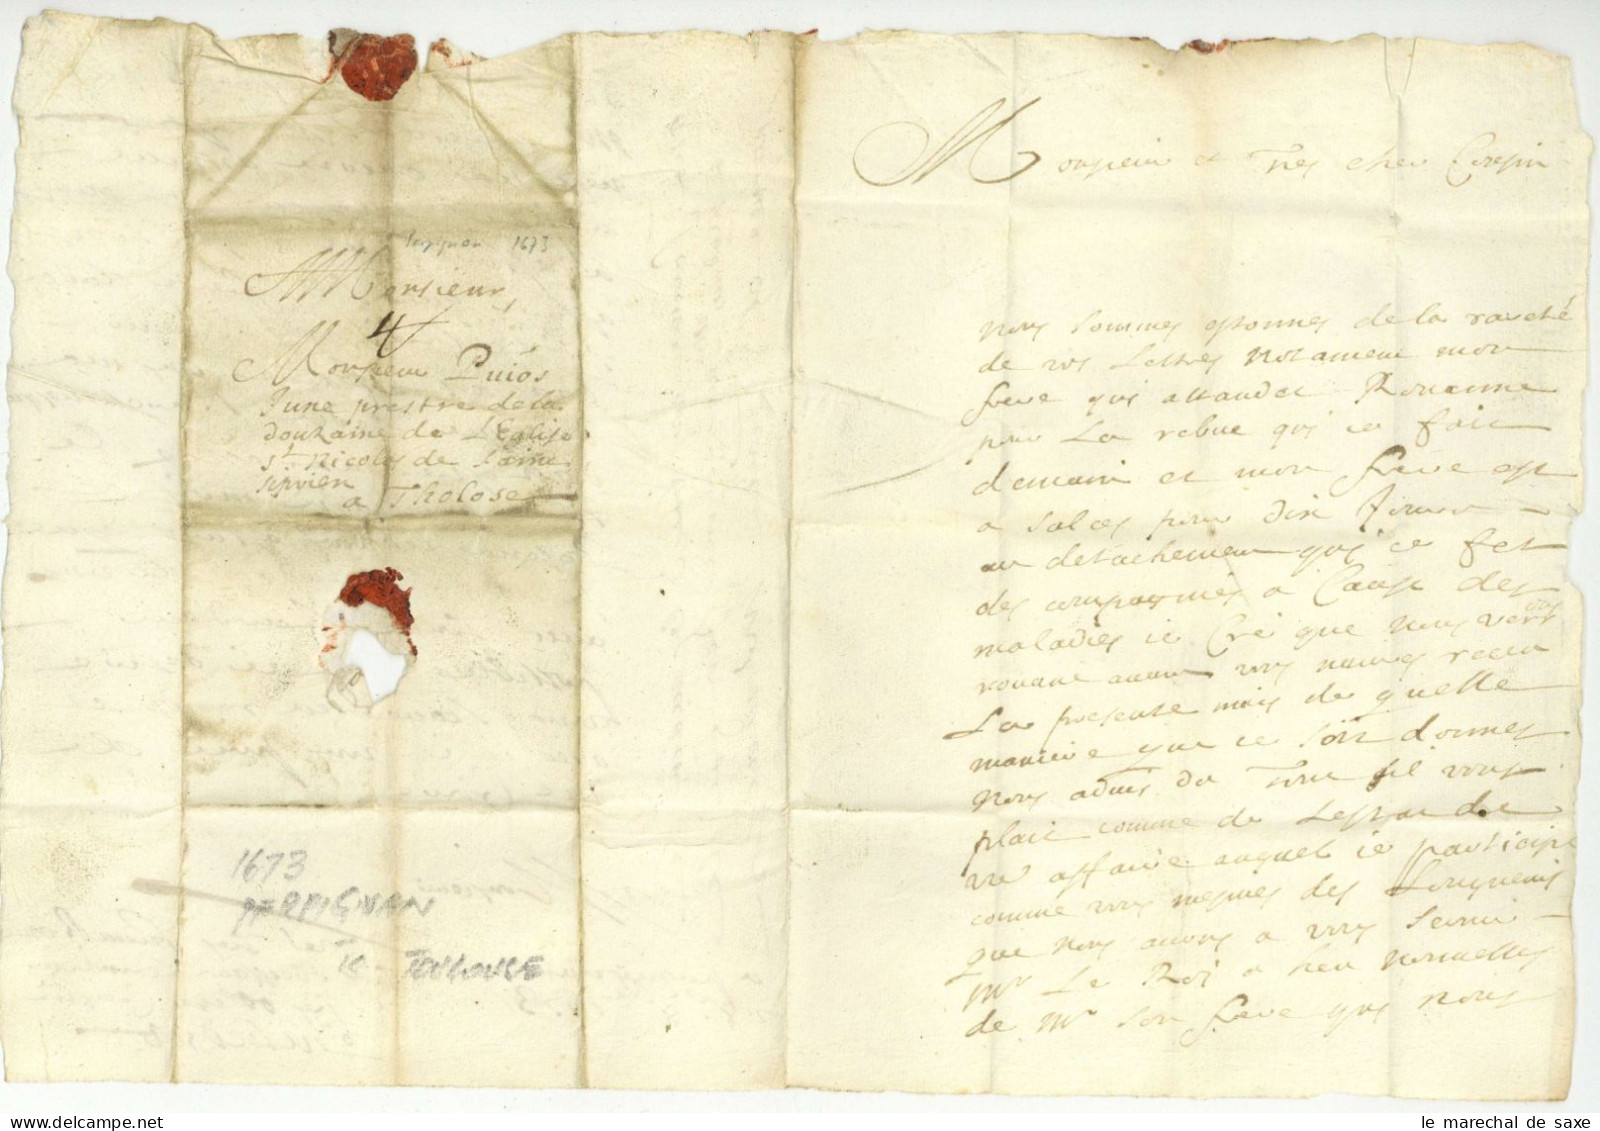 Perpignan 1673
Monsieur
4
Monsieur Puiós
June prestre de la
doutzaine de L'Eglise
st. Nicolas de saint
siprien
a Tholose
1673
PERPIGNAN
to TOULOUSE
Monsieur et Tres cher Cousin
nous sommes estonnes de la rareté
de vos Lettres notament mon
frere qui attandet Rouanne
pour La rebue qui ce fait
demain et mon frere est
a salces pour dix Jours
au detachement qui ce fet
des compagnies a Cause des
maladies ie Cre que nous verr
ons
rouane avant vous naures receu
La presente mais de quelle
maniere que ce soit donnes
nous advis du tout sil vous
plait comme de Lestat de
vre affaire auquel ie participe
comme vous mesmes des
que nous avons a vous servir
Mr Le Roi a heu nouvelles
de Mr son frere qui nous
le marechal de saxe